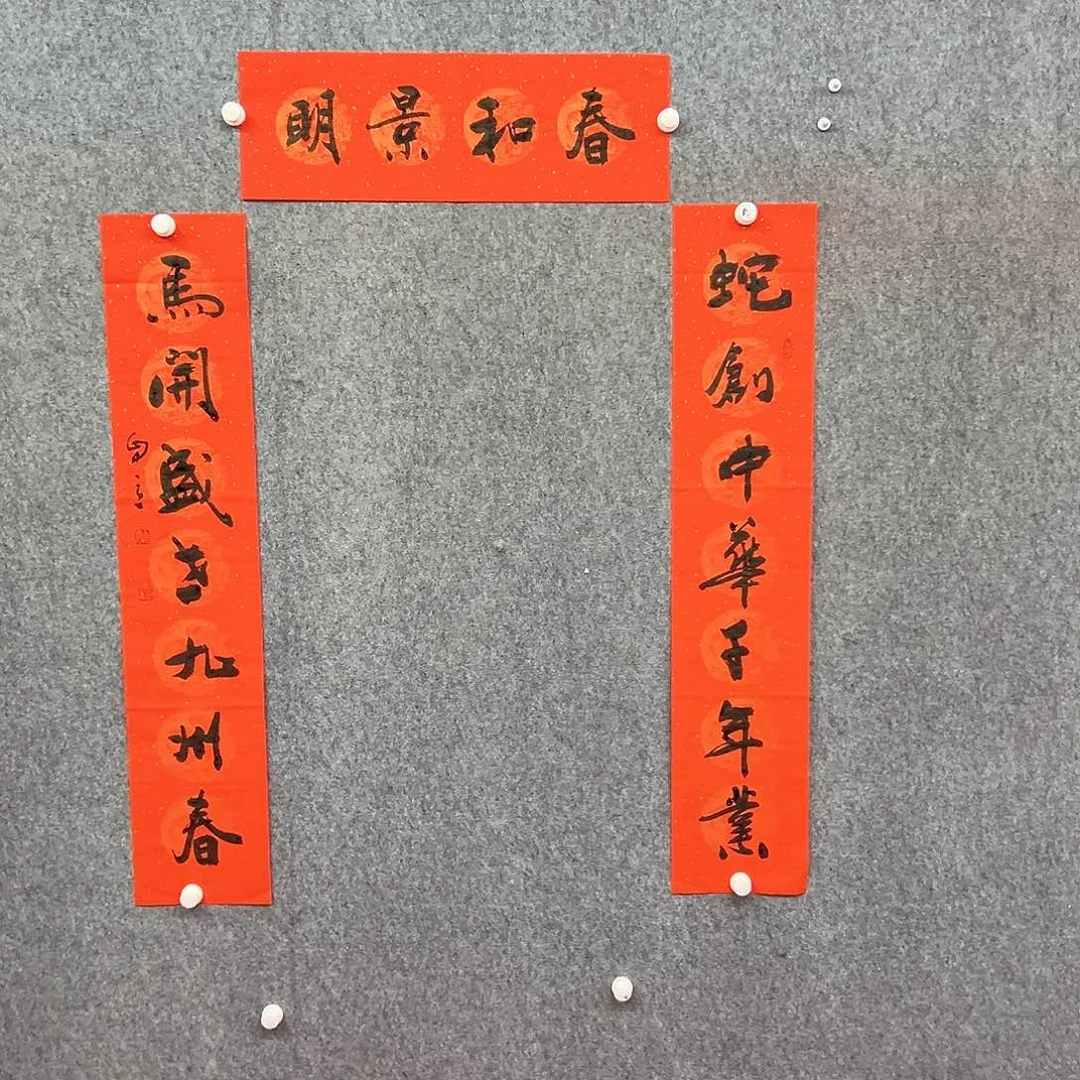 春和景明
蛇創中華千年業
馬開盛世九州春